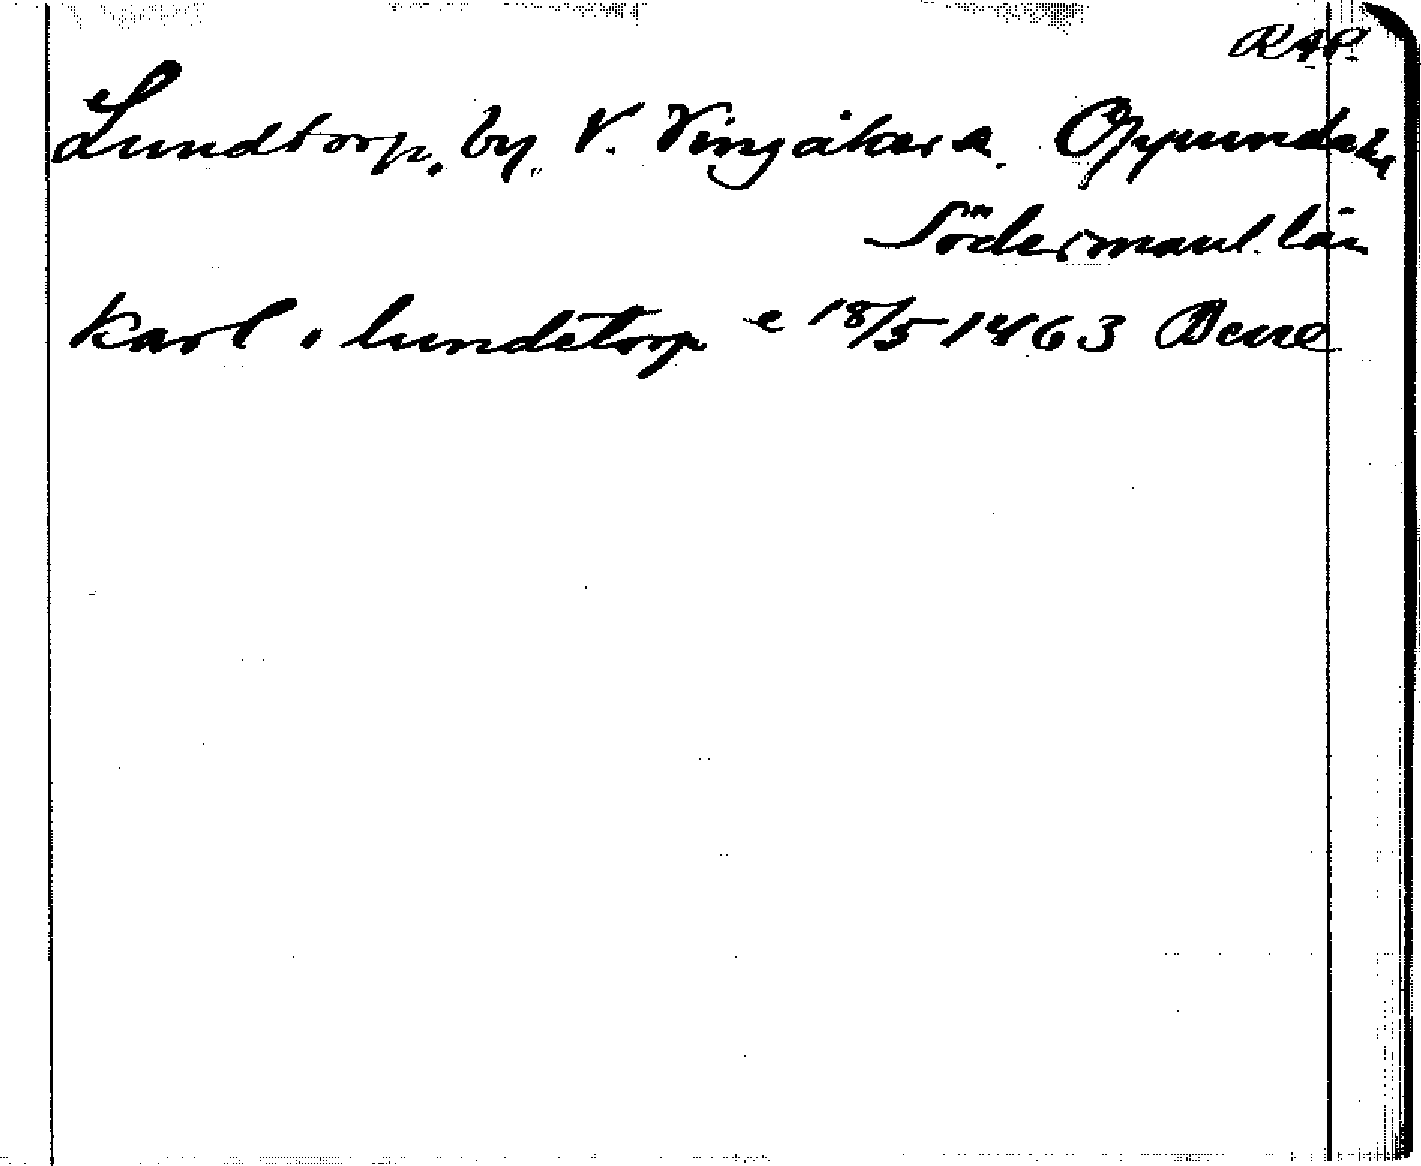 RAP.
Lundtorp, by. V. Vingåkers sn. Oppunda hd
Södermanl. län
karl i lundetorp e 18/5 1463 Dens